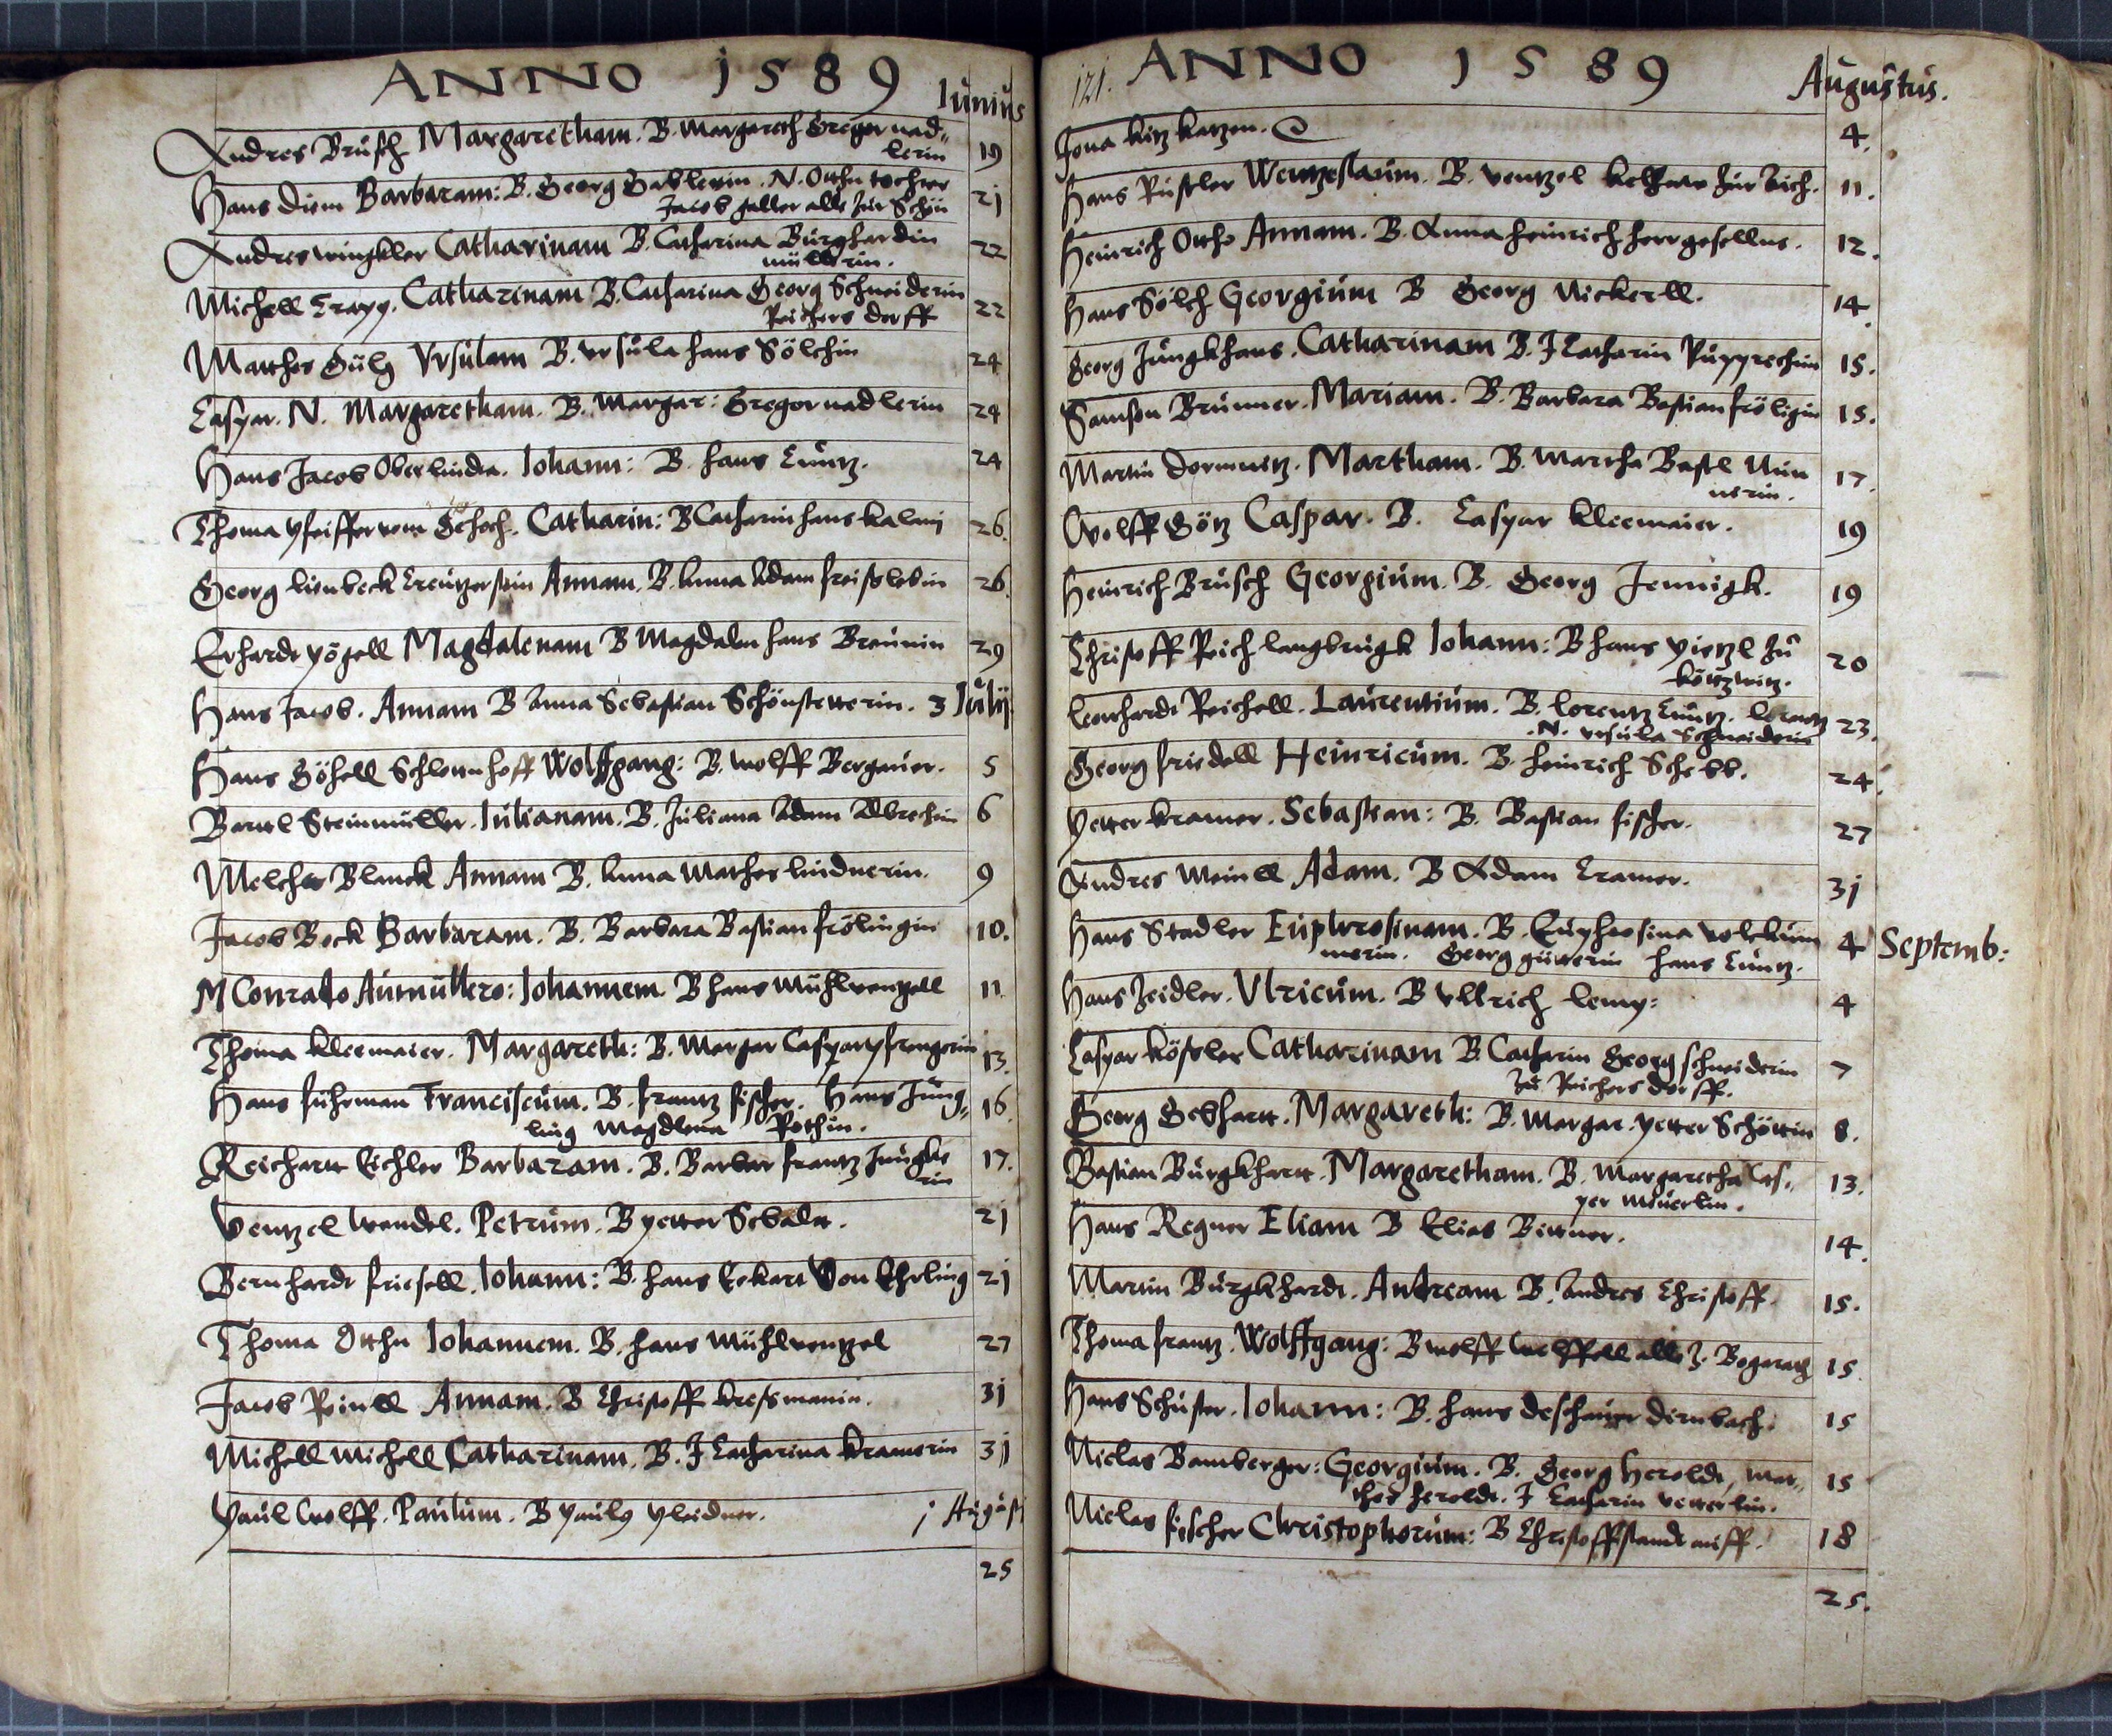 ANNO 1589
Iunius
Andres Brüsch Margaretham. B. Margareth Gregor nad=
lerin 19
Hans Diem Barbaram: B. Georg Gablerin. N. Otthn tochter
Jacob Haller alle zur Schön 21
Andres wingkler Catharinam B. Catharina Burghardin
müllerin. 22
Michell Trapp. Catharinam B. Catharina Georg Schneiderin
Reichersdorff 22
Matthes Vrsulam B. vrsula hans Sölchin 24
Caspar. N. Margaretham. B. Margar: Gregor nadlerin 24
Hans Jacob Oberlindn. Iohann: B. hans Cuntz. 24
Thoma pfeiffer vom Gehoch. Catharin: B Catharin hans kalmi 26.
Georg lienbeck Creutzerstein Annam. B. Anna Adam freisslebin 26.
Erhardt pögell Magdalenam B Magdalen hans Breunin 29
Hans Jacob. Annam B Anna Sebastian Schönstetterin. 3 Iulij
Hans Höhell Wolffgang: B. wolff Bergauer. 5
Bartl Steinmüller. Iulianam. B. Juliana Adam Albrechin 6
Melcher Blanck Annam B. Anna Mathes lindnerin. 9
Jacob Beck Barbaram. B. Barbara Bastian frölingin 10.
M Conrado Aumüllero: Iohannem B hans Mühlwentzell 11
Thoma kleemaier. Margareth: B. Margar Caspar pfrengerin 13.
Hans fuhrman Franciscum. B. frantz fischer. Hans Jüng=
ling Magdlena Rothin. 16
Reichartt Eichler Barbaram. B. Barbar frantz Jungke
rin 17.
Ventzel Wendel. Petrum. B petter Sebaldt. 21
Bernhardt friesell. Iohann: B. hans Eckart Von Ehrling 21
Thoma Otthn Iohannem. B. hans Mühlwentzel 27
Jacob Reinell Annam. B Christoff kressmanin. 31
Michell Michell Catharinam. B. J Catharina kramerin 31
Paul Wolff. Paulum. B pauls pleidner. 1 Augusti
25
121. ANNO 1589
Augustus.
Jona kitz katzen. 4.
Hans Püstler Wentzeslaum. B. ventzel zur 11.
Heinrich Ottho Annam. B. Anna heinrich herrgesellns. 12.
Hans Sölch Georgium B Georg Nickerll. 14.
Georg Jüngkhans. Catharinam B. J Catharin Rupprechin 15.
Samson Brunner. Mariam. B. Barbara Bastian fröligin 15.
Martin Dormnitz. Martham. B. Martha Bastl Nun
nerin. 17.
Wolff Götz Caspar. B. Caspar kleemaier. 19
Heinrich Brüsch Georgium. B. Georg Jennigk. 19
Christoff Reich langbrugk Iohann: B hans pietzl zu
20
lenhardt Reichell. Laurentium. B. lorentz Cuntz. lorentz
.N. vrsula Schneiderin 23.
Georg friedell Heinricum. B. heinrich Schebb. 24.
Petter kramer. Sebastian: B. Bastian fischer. 27
Andres Meinell Adam. B Adam Cramer. 31
Hans Stadler Euphrosinam. B. Euphrosina volckam
merin. Georg gütterin hans Cuntz. 4 Septemb:
Hans Zeidler. Vlricum. B vllrich lemp: 4
Caspar kössler Catharinam B Catharin Georg schneiderin
zu Reichersdorff. 7
Georg Gebhartt. Margareth: B. Margar. petter Schöttin 8.
Bastian Burgkhartt. Margaretham. B. Margaretha Cas=
per Meuerlin. 13.
Hans Regner Eliam B Elias Bittner. 14.
Martin Burgkhardt. Andream B. Andres Christoff. 15.
Thoma frantz. Wolffgang: B wolff alle z. 15
Hans Schuster. Iohann: B. hans Deschauer dirnbach. 15
Niclas Bamberger: Georgium. B. Georg heroldt, Mat=
thes heroldt. J Catharin vetterlin. 15
Niclas fischer Christophorum: B Christoff standtnuff. 18
25.